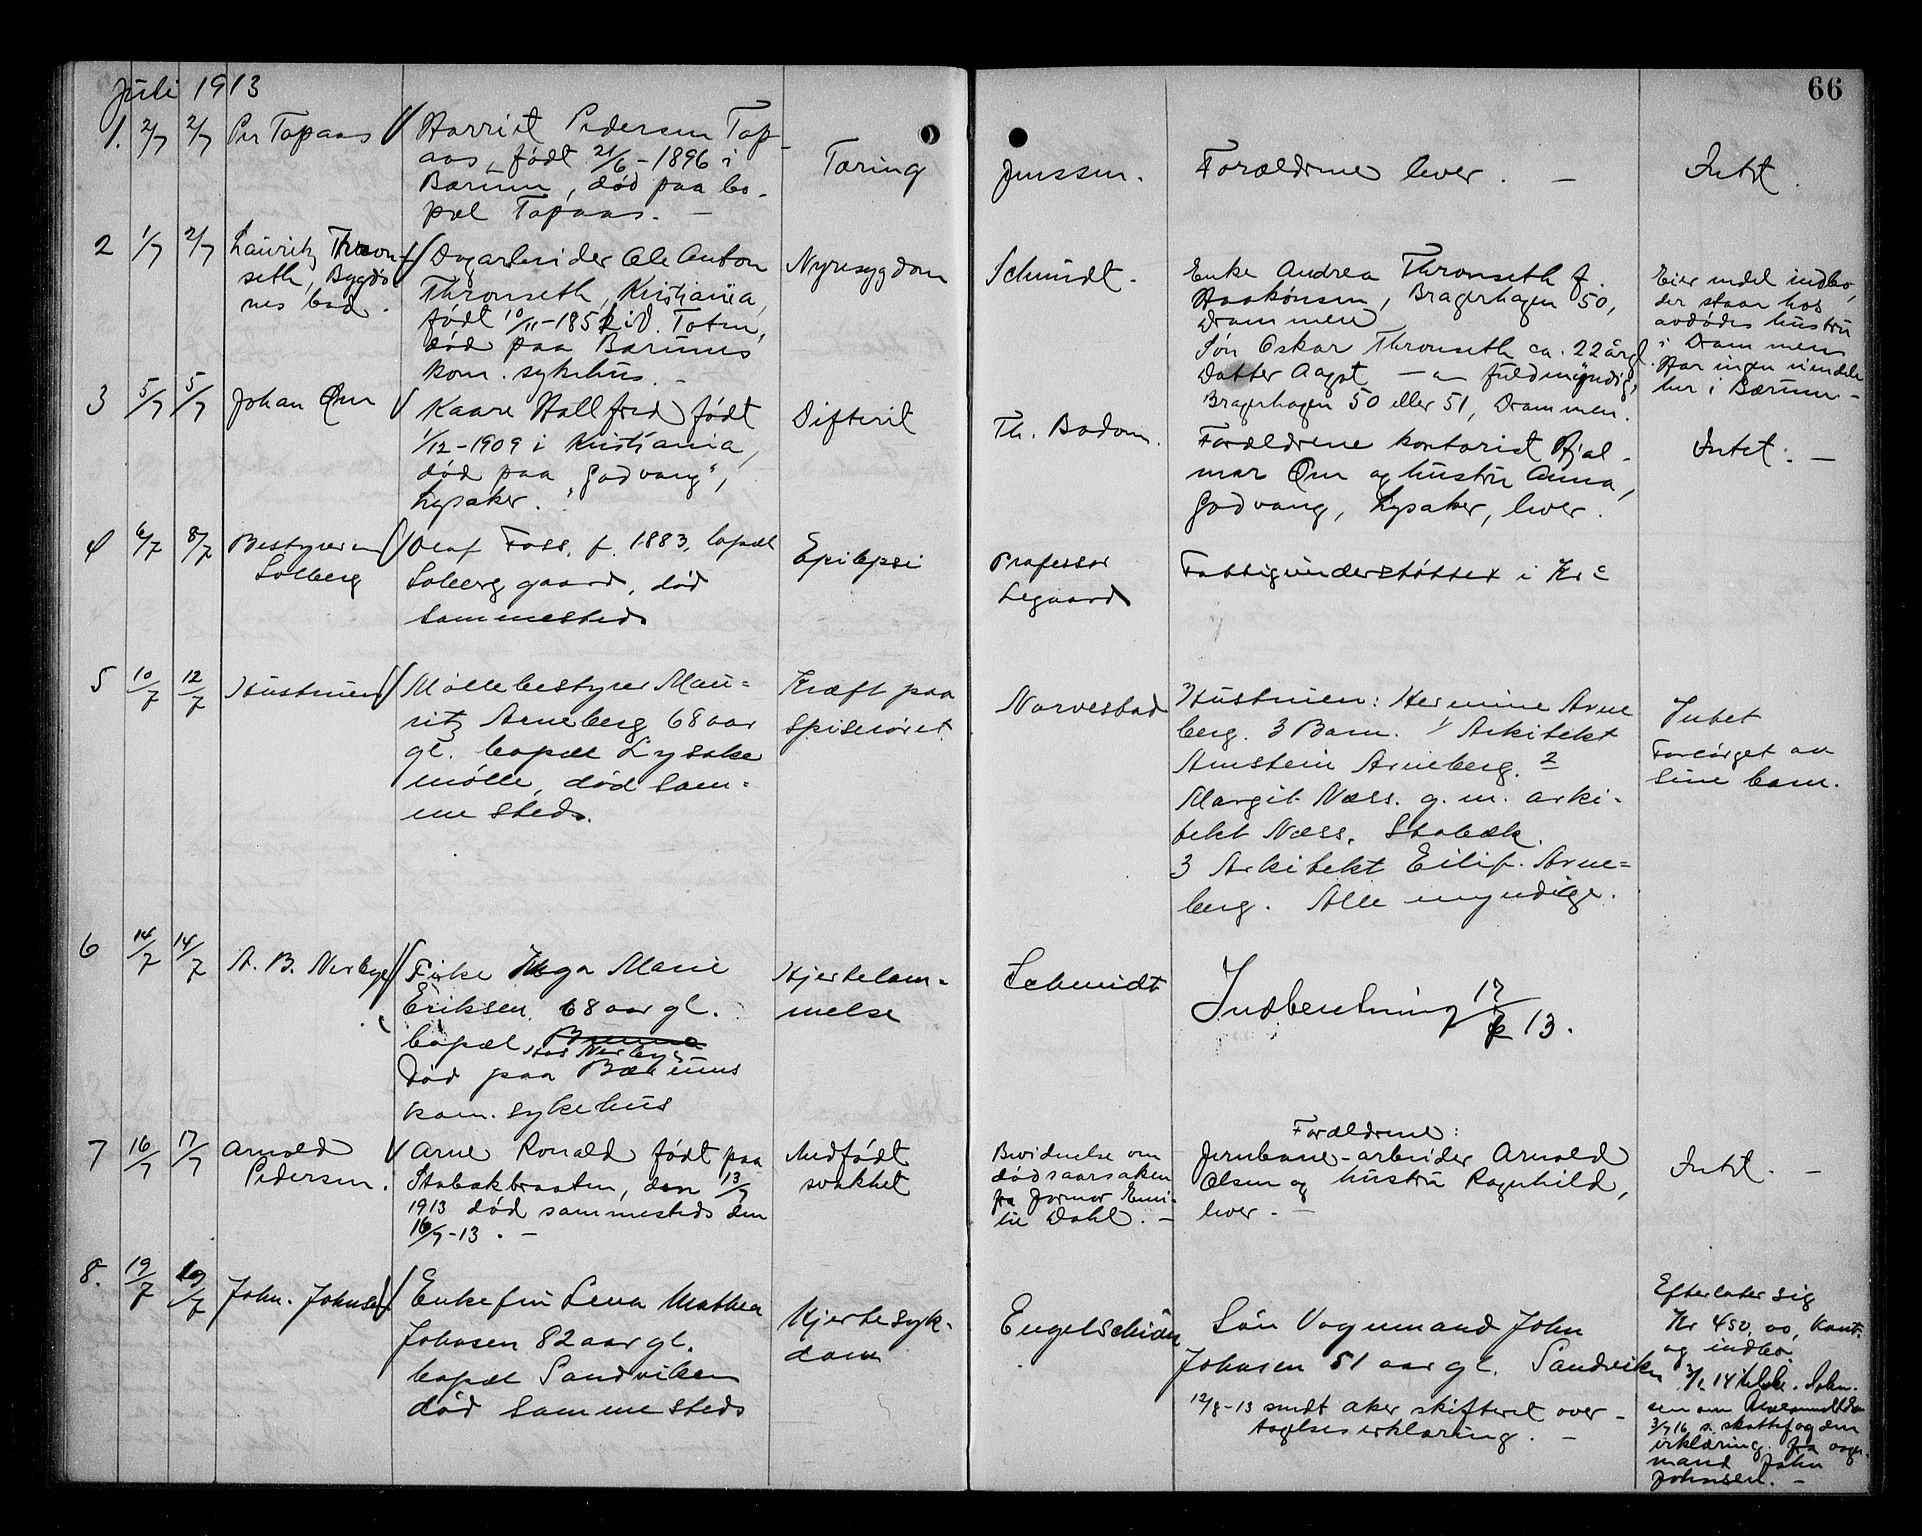 66
Juli 1913
1. 2/7 2/7 Per Topaas
Harriet Pedersen Top-
aas, født 21/6-1896 i
Bærum, død paa bo-
pæl Topaas. -
Tæring
Jenssen.
Forældrene lever. -
Intet.
2 1/7 2/7 Lauritz Thron-
seth, Bygdø-
nes bad.
Dagarbeider Ole Anton
Thronseth, Kristiania,
født 10/11-1851 i V. Toten,
død paa Bærums
kom. sykehus. -
Nyresygdom
Schmidt.
Enke Andrea Thronseth f.
Haakonsen, Bragerhagen 50,
Drammen
Søn Oskar Thronseth ca. 22 år gl.
Datter Aagot - " - fuldmyndig,
Bragerhagen 50 eller 51, Drammen.
Eier endel indbo,
der staar hos
avdødes hustru
i Drammen
Har ingen eiendele
her i Bærum -
3 5/7 5/7 Johan Øen
Kaare Hallfred født
1/12-1909 i Kristiania,
død paa "Godvang",
Lysaker.
Difterit
Th. Bodom.
Forældrene kontorist Hjal-
mar Øen og hustru Anna,
Godvang, Lysaker, lever.
Intet. -
4 6/7 8/7 Bestyreren
Solberg
Olaf Foss, f. 1883, bopæl
Solberg gaard, død
sammesteds
Epilepsi
Professor
Legaard
Fattigunderstøttet i Kr.a
5 10/7 12/7 Hustruen
Møllebestyrer Mau=
ritz Arneberg 68 aar
gl. bopæl Lysake
mølle, død sam=
me steds.
Kræft paa
spiserøret
Narvesbad
Hustruen: Hermine Arne
berg. 3 Barn. 1/ Arkitekt
Arnstein Arneberg. 2
Margit Næss. g. m. arki-
tekt Næss, Stabæk.
3 Arkitekt Eilif. Arne=
berg. Alle myndige.
Intet
Forsørget av
sine barn.
6 14/7 14/7 A. B. Nerbye
Frøke Inga Marie
Eriksen, 68 aar gl.
bopæl
hos Nerbye
død paa Bærums
kom. sykehus
Hjertelam=
melse
Schmidt
Indberetning 17/7 13.
7 16/7 17/7 Arnold
Pedersen.
Arne Ronald født paa
Stabækbraaten, den 13/7
1913 død sammesteds den
16/7-13. -
Medfødt
svakhet
Bevidnelse om
dødsaarsaken
fra Jormor Emi-
lie Dahl. -
Forældrene:
Jernbane-arbeider Arnold
Olsen og hustru Ragnhild,
lever. -
Intet. -
8. 19/7 19/7 John. Johnsen
Enkefru Lena Mathea
Johnsen 82 aar gl.
bopæl Sandviken
død sammesteds
Hjertesyk-
dom
Engelschiøn
Søn Vognmand John
Johnsen 51 aar gl. Sandviken
12/8-13 sendt aker skifteret over-
tagelseserklæring. -
Efterlater sig
Kr 450,00, kont.
og indbo.
14 John-
sen om
3/7 16 s. skattefogden
erklæring fra vogn-
mand John
Johnsen. -